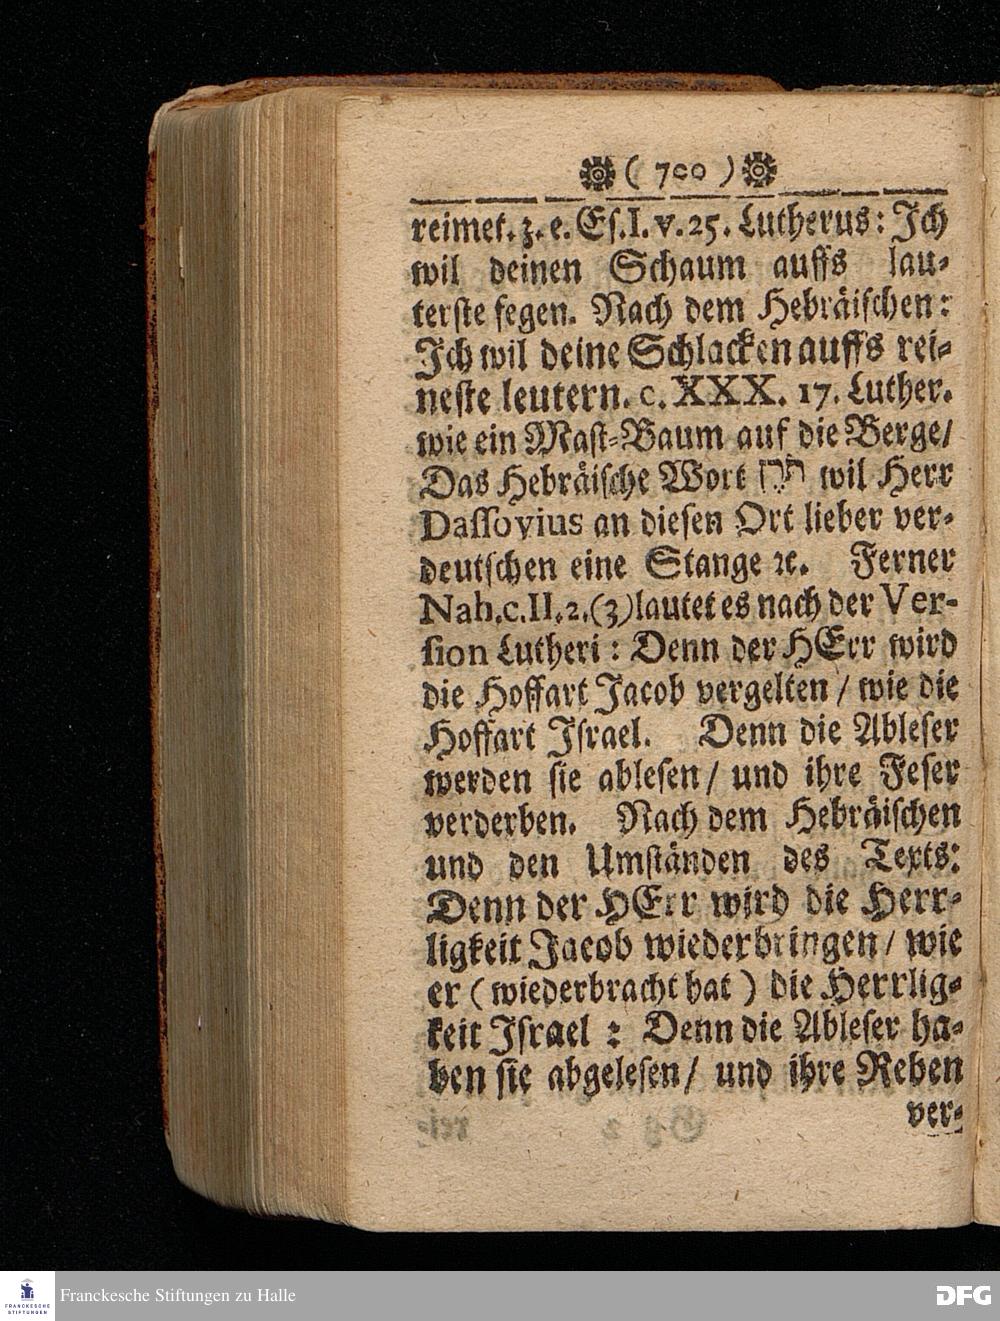 ( 700 )
reimet. z. e. Es. I. v. 25. Lutherus: Ich
wil deinen Schaum auffs lau-
terste fegen. Nach dem Hebräischen:
Ich wil deine Schlacken auffs rei-
neste leutern. c. XXX. 17. Luther.
wie ein Mast-Baum auf die Berge/
Das Hebräische Wort תרן wil Herr
Dassovius an diesen Ort lieber ver-
deutschen eine Stange ꝛc. Ferner
Nah. c. II. 2. (3) lautet es nach der Ver-
sion Lutheri: Denn der HErr wird
die Hoffart Jacob vergelten / wie die
Hoffart Israel. Denn die Ableser
werden sie ablesen / und ihre Feser
verderben. Nach dem Hebräischen
und den Umständen des Texts:
Denn der HErr wird die Herr-
ligkeit Jacob wiederbringen / wie
er (wiederbracht hat) die Herrlig-
keit Israel: Denn die Ableser ha-
ben sie abgelesen / und ihre Reben
ver-
FRANCKESCHE
STIFTUNGEN
Franckesche Stiftungen zu Halle
DFG